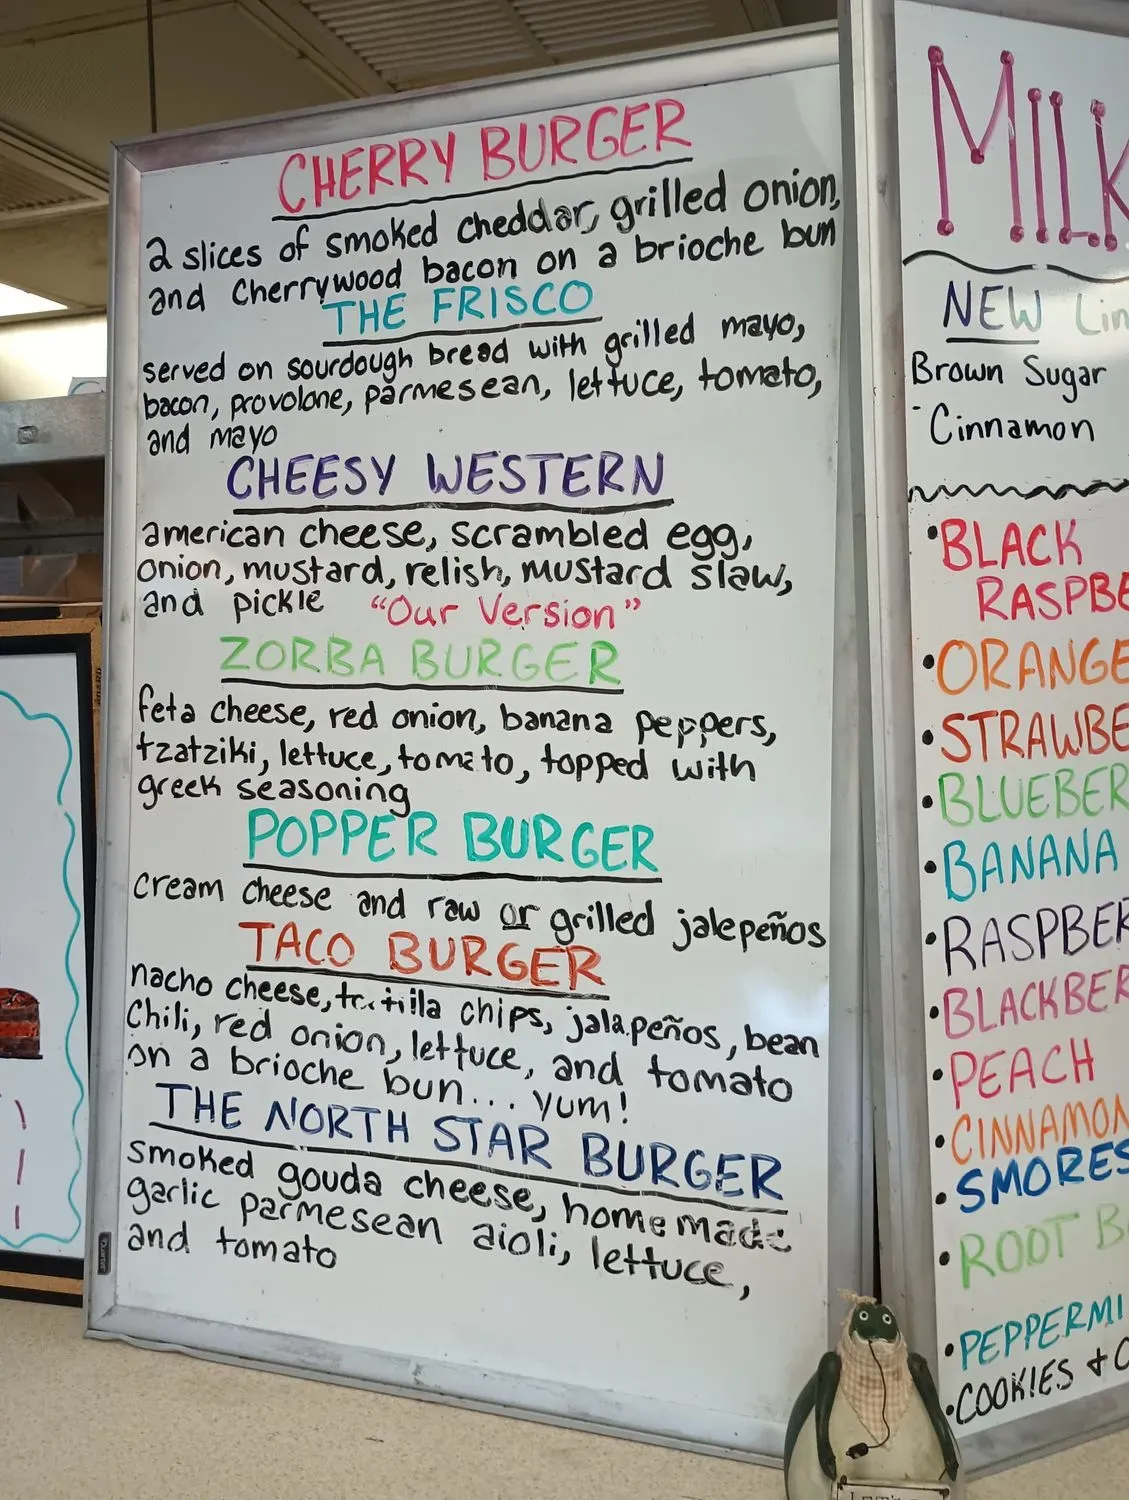 CHERRY BURGER
2 slices of smoked cheddar, grilled onion,
and Cherrywood bacon on a brioche bun
THE FRISCO
served on sourdough bread with grilled mayo,
bacon, provolone, parmesean, lettuce, tomato,
and mayo
CHEESY WESTERN
american cheese, scrambled egg,
onion, mustard, relish, mustard slaw,
and pickle "Our Version"
ZORBA BURGER
feta cheese, red onion, banana peppers,
tzatziki, lettuce, tomato, topped with
greek seasoning
POPPER BURGER
cream cheese and raw or grilled jalepeños
TACO BURGER
nacho cheese, tortilla chips, jalapeños, bean
Chili, red onion, lettuce, and tomato
on a brioche bun... yum!
THE NORTH STAR BURGER
smoked gouda cheese, homemade
garlic parmesean aioli, lettuce,
and tomato
Quartet
MILK
NEW
Brown Sugar
Cinnamon
•BLACK
RASPBE
•ORANGE
•STRAWBE
•BLUEBER
•BANANA
•RASPBER
•BLACKBER
•PEACH
•CINNAMON
•SMORES
•ROOT B
•PEPPERMI
•COOKIES + C
LET'S